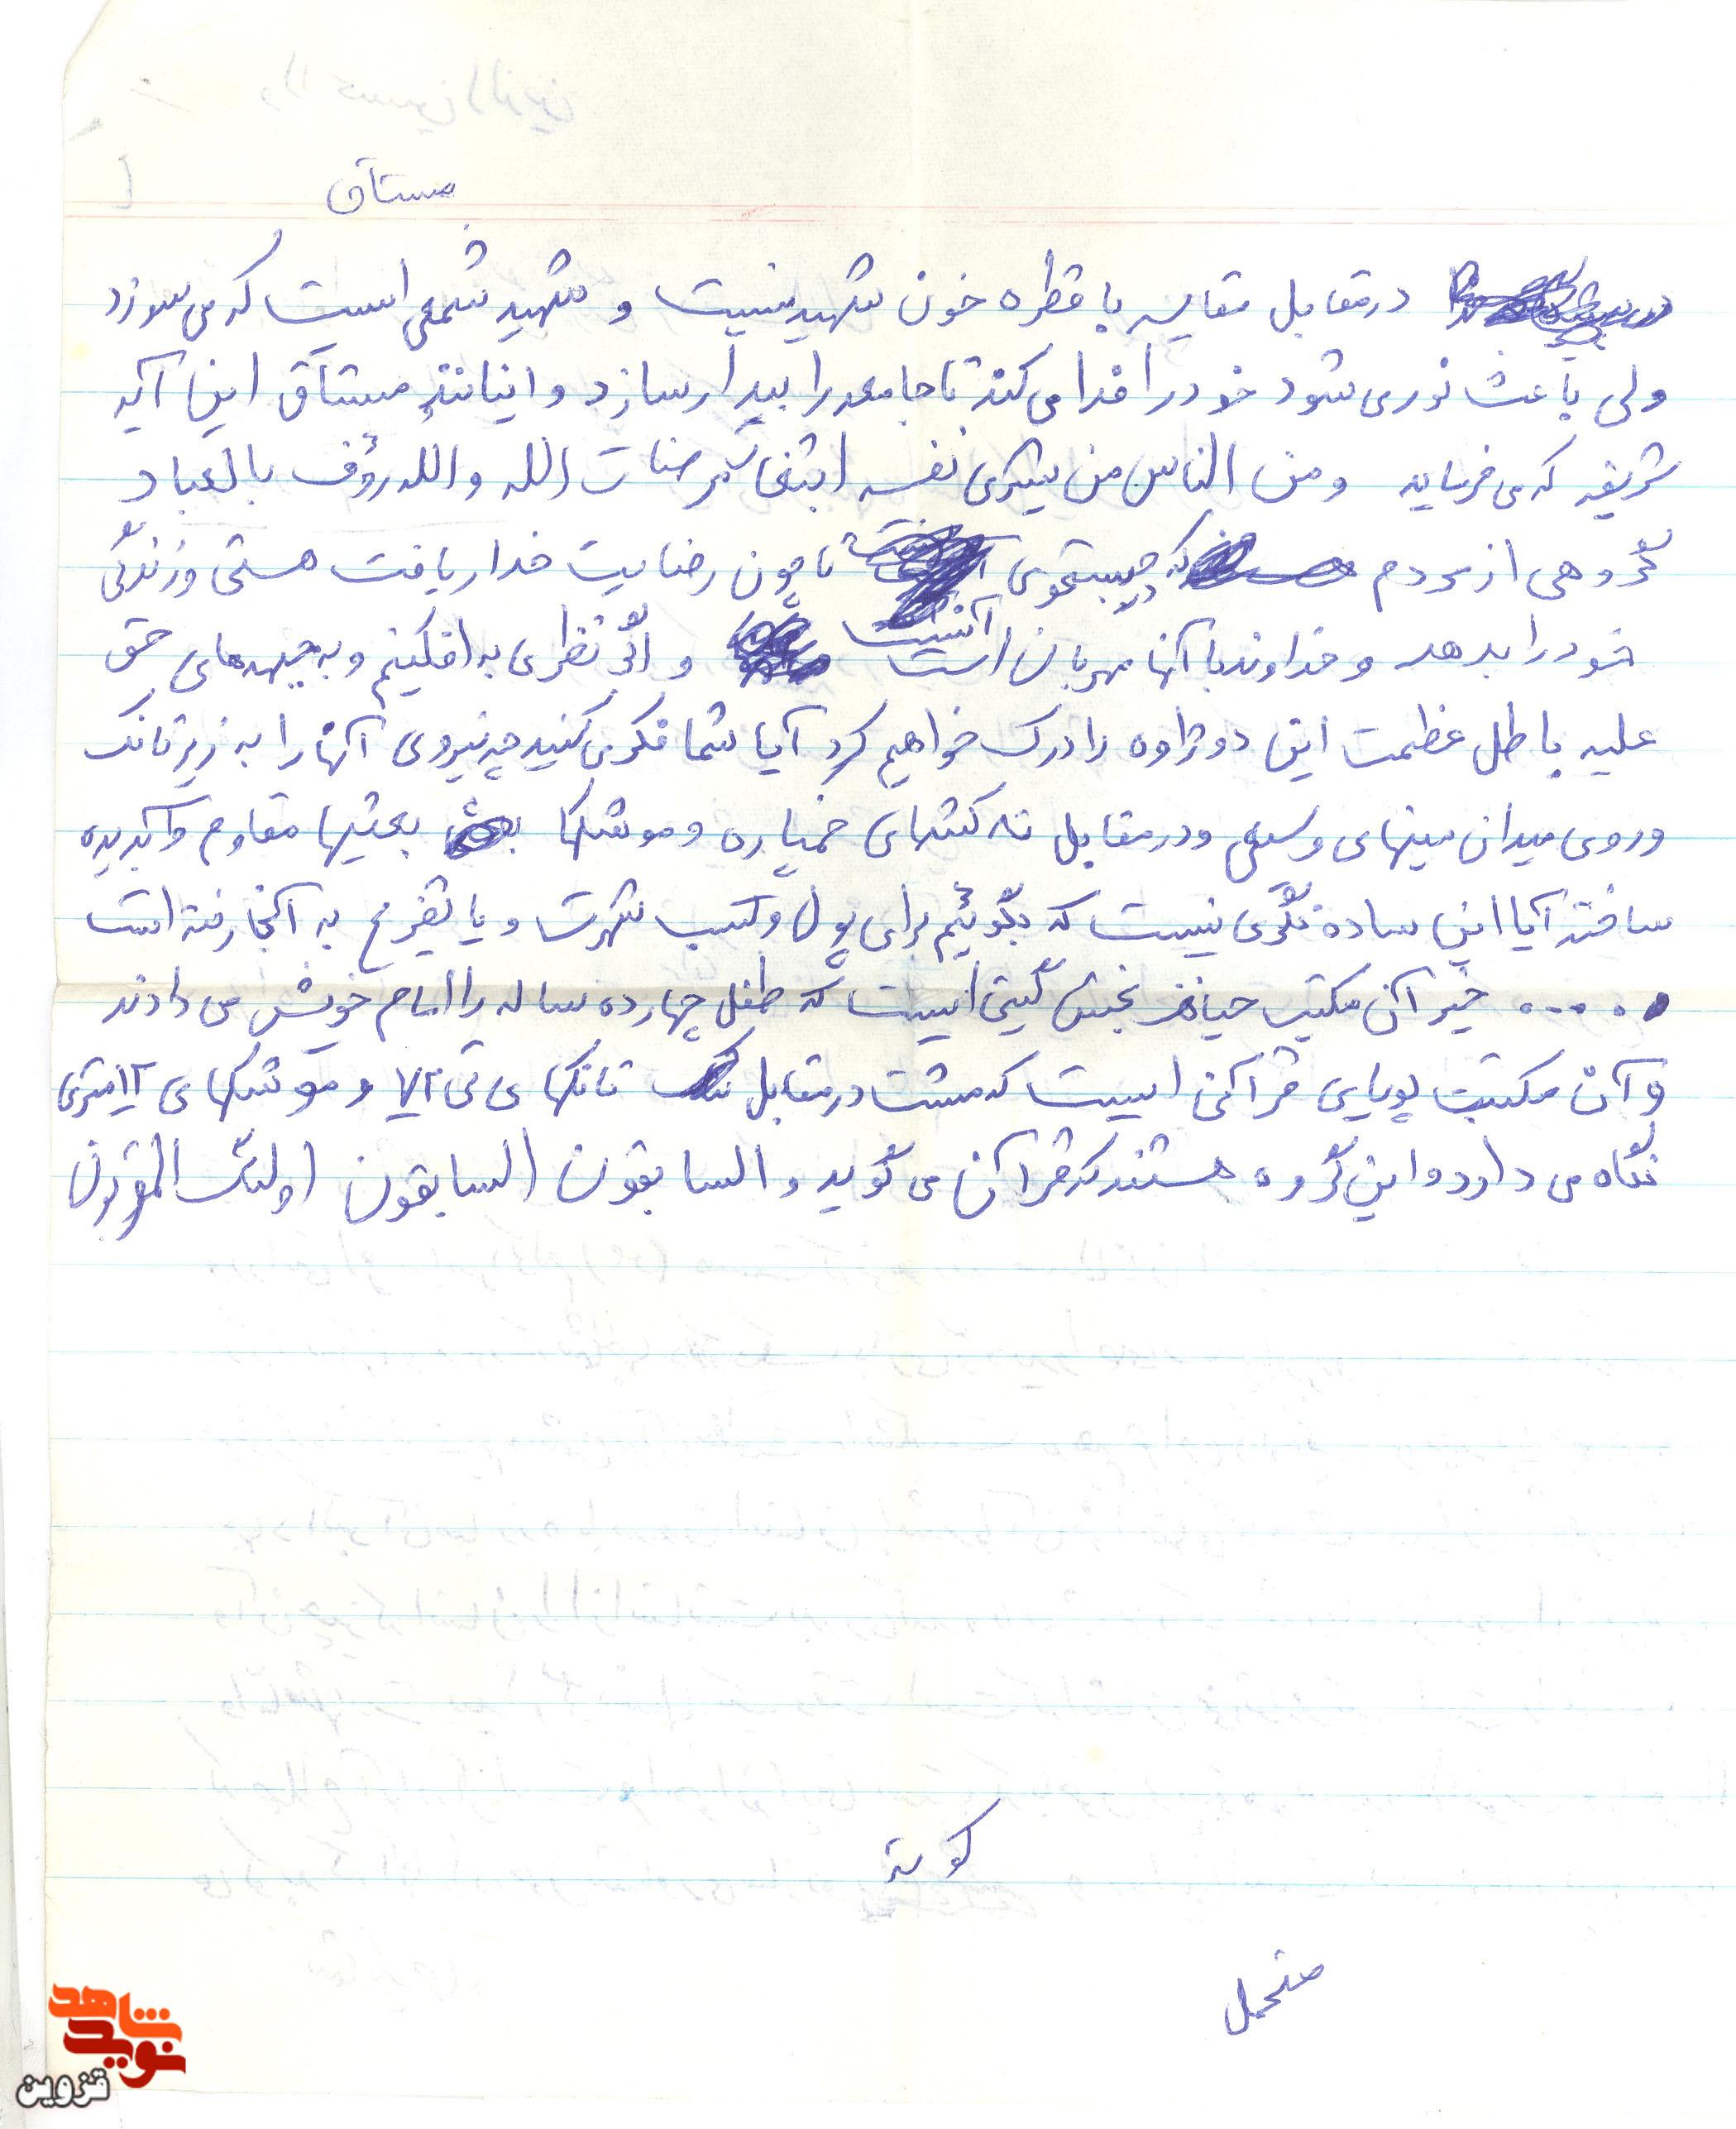 مستآق
در مقابل مقایسه با قطره خون شهید نیست و شهید شمعی است که می سوزد
ولی باعث نوری شود خود را فدا می کند تا جامعه را بیدار سازد و اینانند مستآق این آیه
شریفه که می فرماید ومن الناس من یشری نفسه ابتغا مرضات الله والله رؤف بالعباد
گروهی از مردم که درجستجوی آنست تا چون رضایت خدا ریافت هستی و زندگی
خود را بدهد و خداوند با آنها مهربان است و اگر نظری به افکنیم و به جبهه های حق
علیه باطل عظمت این دو واژه را درک خواهیم کرد آیا شما فکر می کنید چه نیروی آنها را به زیر تانک
و روی میدان مینهای وسیع و در مقابل خمپاره و موشکها بعثیها مقاوم و آبدیده
ساخته آیا این ساده نگری نیست که بگوئیم برای پول و کسب شهرت و یا تفریح به آنجا رفته است
..... خیر آن مکتب حیات بخش گیتی است که طفل چهارده ساله را امام خویش می دادند
و آن مکتب پویای قرآنی است که مشت در مقابل تانکهای تی ۷۲ و موشکهای ۱۲ متری
نگاه می دارد و این گروه هستند که قرآن می گوید والسابقون السابقون اولئک المقربون
کوته
متحمل
نوید شاهد
قزوین